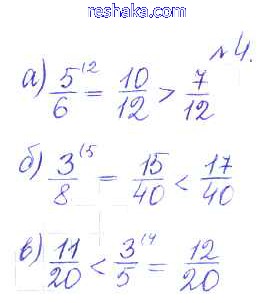 reshaka.com
№ 4.
а) 5/6 (2 = 10/12 > 7/12
б) 3/8 (5 = 15/40 < 17/40
в) 11/20 < 3/5 (4 = 12/20